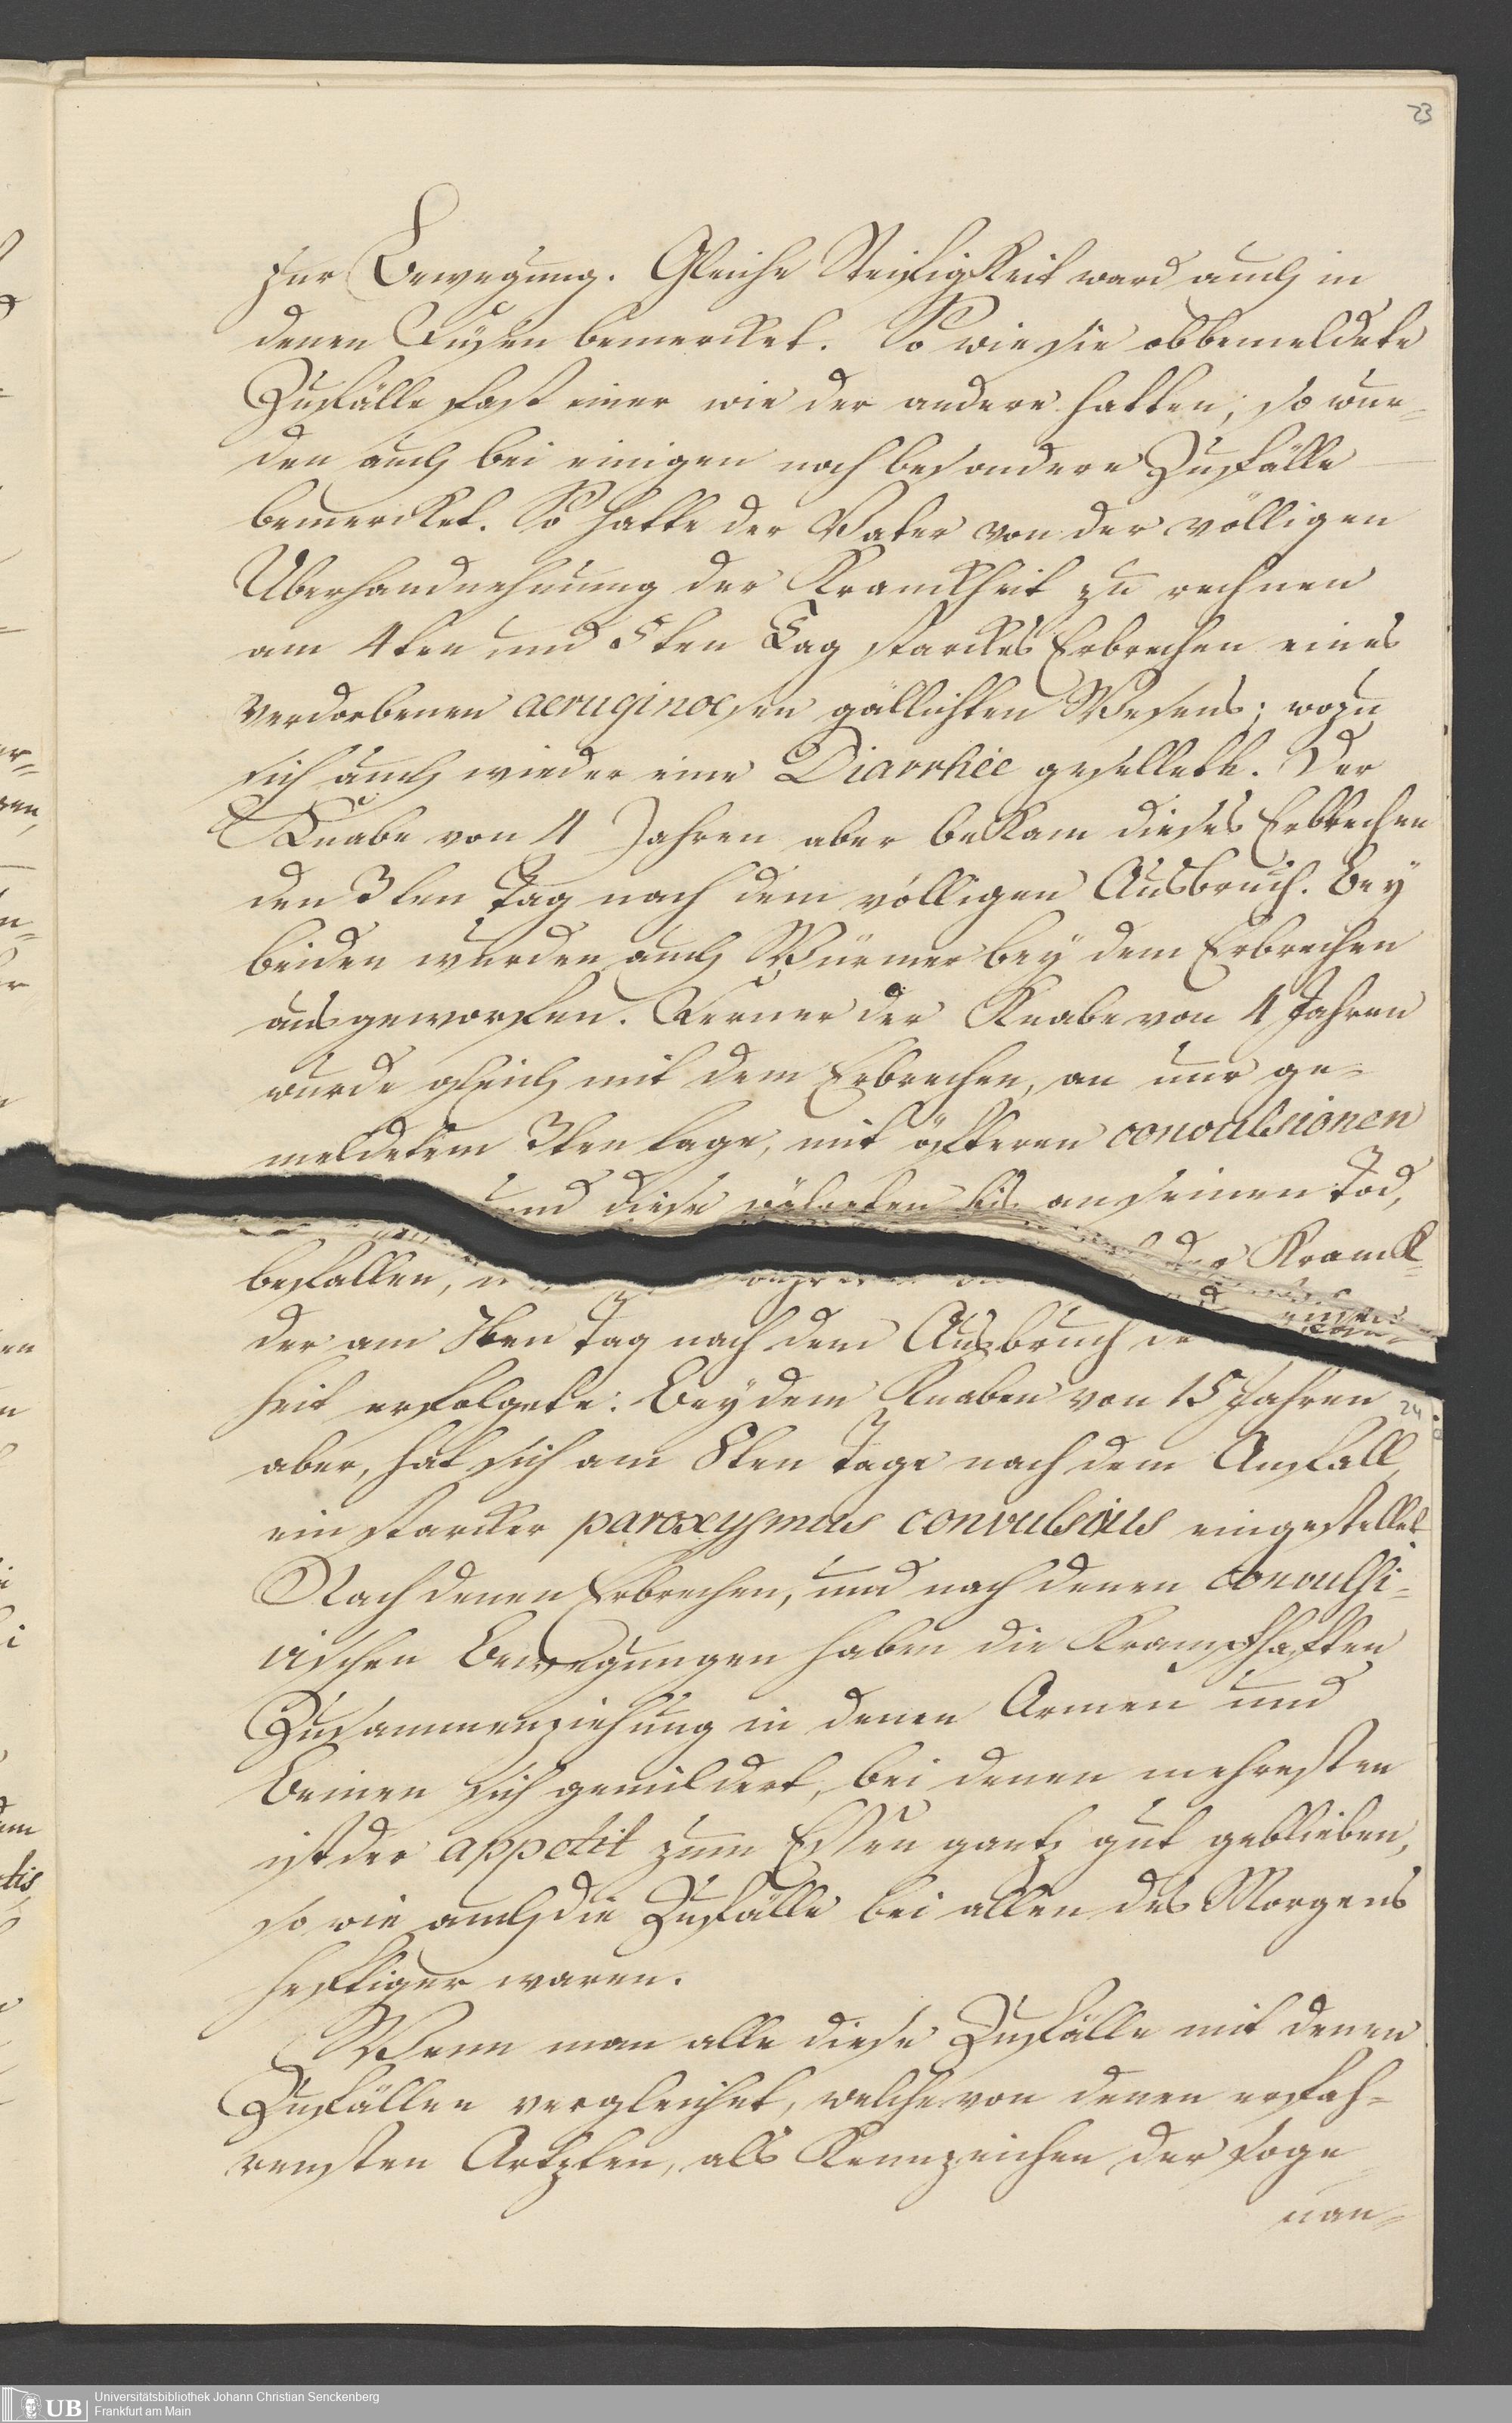 23
zur Bewegung. Gleiche Steifigkeit ward auch in
denen Füßen bemercket. So wie sie obbemeldete
Zufälle fast einer wie der andere hatten, so wur-
den auch bei einigen noch besondere Zufälle
bemercket. So hatte der Vater von der völligen
Überhandnehmung der Kranckheit zu rechnen
am 4ten und 5ten Tag starckes Erbrechen eines
verdorbenen aeruginosen gällichten Wesens; wozu
sich auch wieder eine Diarrhée gesellete. Der
Knabe von 4 Jahren aber bekam dieses Erbrechen
den 3ten Tag nach dem völligen Ausbruch. Bey
beiden wurden auch Würmer bey dem Erbrechen
ausgeworfen. Ferner der Knabe von 4 Jahren
wurde gleich mit dem Erbrechen, an nur ge-
meldetem 3ten tage, mit öfteren convulsionen
und diese währeten bis an seinen Tod,
der Kranck-
befallen,
der am 7ten Tag nach dem Ausbruch
heit erfolgete: Bey dem Knaben von 15 Jahren
24
aber, hat sich am 8ten Tage nach dem Anfall
ein starcker paroxysmus convulsivus eingestellet
Nach denen Erbrechen, und nach denen convulsi-
vischen Bewegungen haben die Krampfhaften
Zusammenziehung in denen Armen und
Beinen sich gemildert, bei denen mehresten
ist der appetit zum Essen gantz gut geblieben,
so wie auch die Zufälle bei allen des Morgens
heftiger waren.
Wenn man alle diese Zufälle mit denen
Zufällen vergleichet, welche von denen erfah-
rensten Artzten, als Kennzeichen der soge
nan-
UB
Universitätsbibliothek Johann Christian Senckenberg
Frankfurt am Main